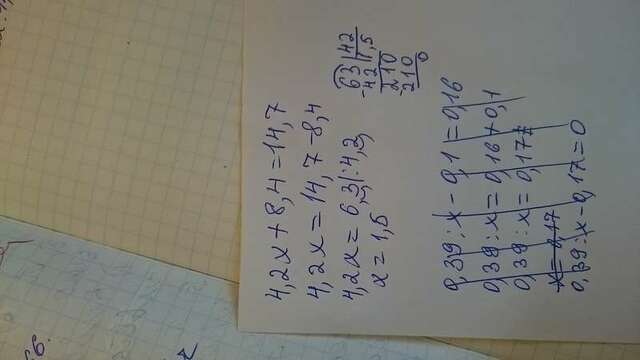 4,2x+8,4=14,7
4,2x=14,7-8,4
4,2x=6,3|:4,2
x=1,5
63|42
-42|1,5
210
-210
0
0,39:x-0,1=0,16
0,39:x=0,16+0,1
0,39:x=0,17
x=0,17
0,39:x-0,17=0